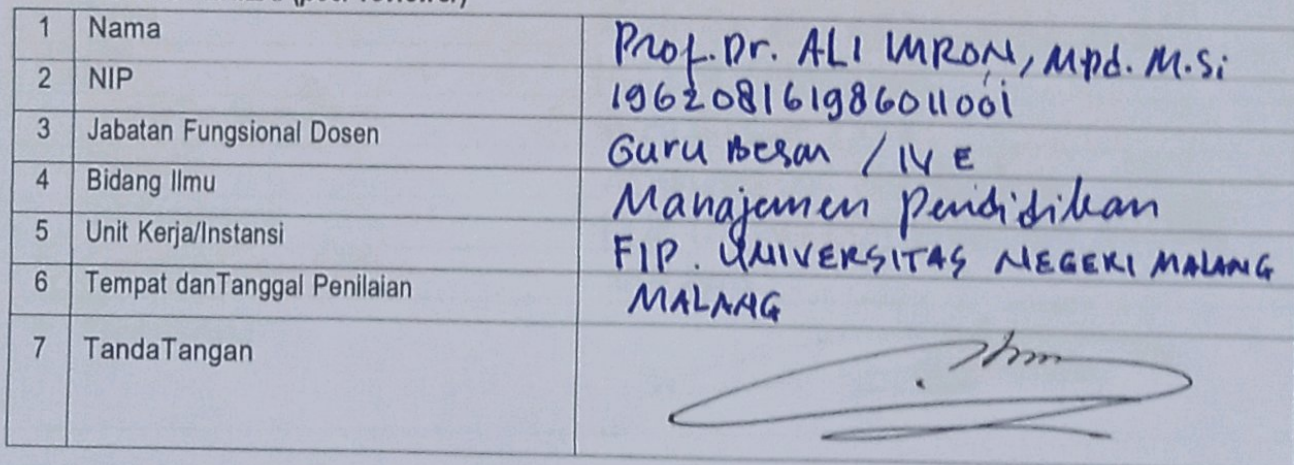 (peer reviewer)
1 Nama Prof. Dr. ALI IMRON, M.Pd. M.Si
2 NIP 196208161986011001
3 Jabatan Fungsional Dosen Guru Besar / IV E
4 Bidang Ilmu Manajemen Pendidikan
5 Unit Kerja/Instansi FIP. UNIVERSITAS NEGERI MALANG
6 Tempat danTanggal Penilaian MALANG
7 TandaTangan